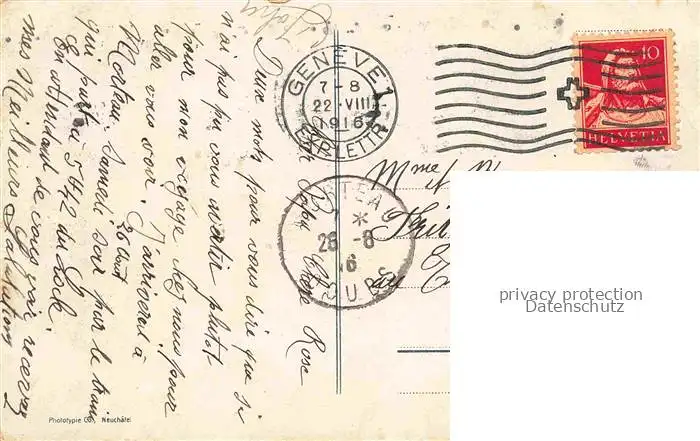 Deux mots pour vous dire que si
n'ai pas pu vous avertir plutôt
pour mon voyage chez nous pour
aller vous voir. J'arriverai à
Morteau Samedi soir par le train
26 Août
qui part à 5 H 42 du Locle
En attendant de vous voir recevez
mes Meilleurs Salutations
Rose
GENÈVE 1
7-8
22 VIII
1916
EXP. LETTR.
10
HELVETIA
Mme
26-8
16
DOUBS
privacy protection
Datenschutz
Phototypie Co., Neuchâtel